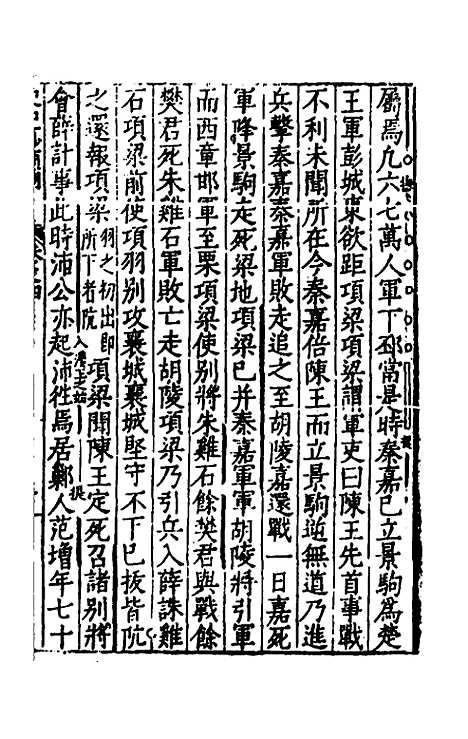 屬焉凡六七萬人軍下邳當是時秦嘉已立景駒爲楚
王軍彭城東欲距項梁項梁謂軍吏曰陳王先首事戰
不利未聞所在今秦嘉倍陳王而立景駒逆無道乃進
兵擊秦嘉秦嘉軍敗走追之至胡陵嘉還戰一日嘉死
軍降景駒走死梁地項梁已并秦嘉軍軍胡陵將引軍
而西章邯軍至栗項梁使别將朱雞石餘樊君與戰餘
樊君死朱雞石軍敗亡走胡陵項梁乃引兵入薛誅雞
石項梁前使項羽别攻襄城襄城堅守不下已拔皆阬
之還報項梁羽之初出即所下者阬項梁聞陳王定死召諸别將
會薛計事此時沛公亦起沛徃焉居鄛人范增年七十